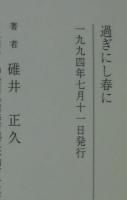 過ぎにし春に
一九九四年七月十一日発行
著者 碓井 正久